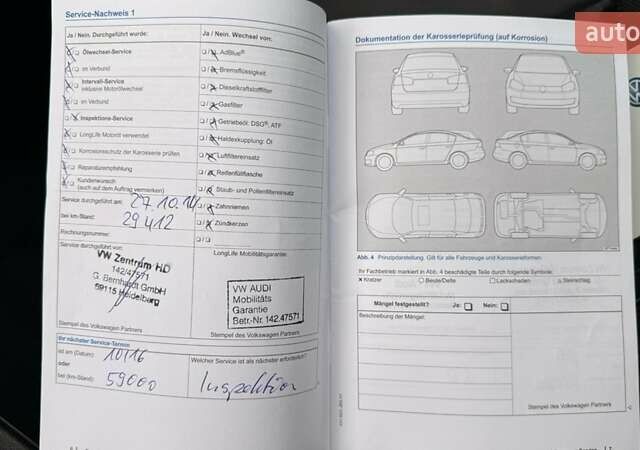 Service-Nachweis 1
Ja / Nein. Durchgeführt wurde:
Ölwechsel-Service
im Verbund
Intervall-Service
inklusive Motorölwechsel
im Verbund
Inspektions-Service
LongLife Motoröl verwendet
Korrosionsschutz der Karosserie prüfen
Reparaturempfehlung
Kundenwunsch
(auch auf dem Auftrag vermerken)
Service durchgeführt am: 27.10.14
bei km-Stand: 29412
Rechnungsnummer:
Service durchgeführt von:
VW Zentrum HD
142/47571
G. Bernhardt GmbH
69115 Heidelberg
Stempel des Volkswagen Partners
Ja / Nein. Wechsel von:
AdBlue®
Bremsflüssigkeit
Dieselkraftstofffilter
Gasfilter
Getriebeöl: DSG®, ATF
Haldexkupplung: Öl
Luftfiltereinsatz
Reifenfüllflasche
Staub- und Pollenfiltereinsatz
Zahnriemen
Zündkerzen
LongLife Mobilitätsgarantie:
VW AUDI
Mobilitäts
Garantie
Betr.-Nr. 142.47571
Stempel des Volkswagen Partners
Ihr nächster Service-Termin
ist am (Datum): 10/16
oder
bei (km-Stand): 59000
Welcher Service ist als nächster erforderlich?
Inspektion
Dokumentation der Karosserieprüfung (auf Korrosion)
Abb. 4 Prinzipdarstellung. Gilt für alle Fahrzeuge und Karosserieformen.
Ihr Fachbetrieb markiert in Abb. 4 beschädigte Teile durch folgende Symbole:
Kratzer
Beule/Delle
Lackschaden
Steinschlag
Mängel festgestellt?
Ja:
Nein:
Beschreibung der Mängel:
Stempel des Volkswagen Partners
auto